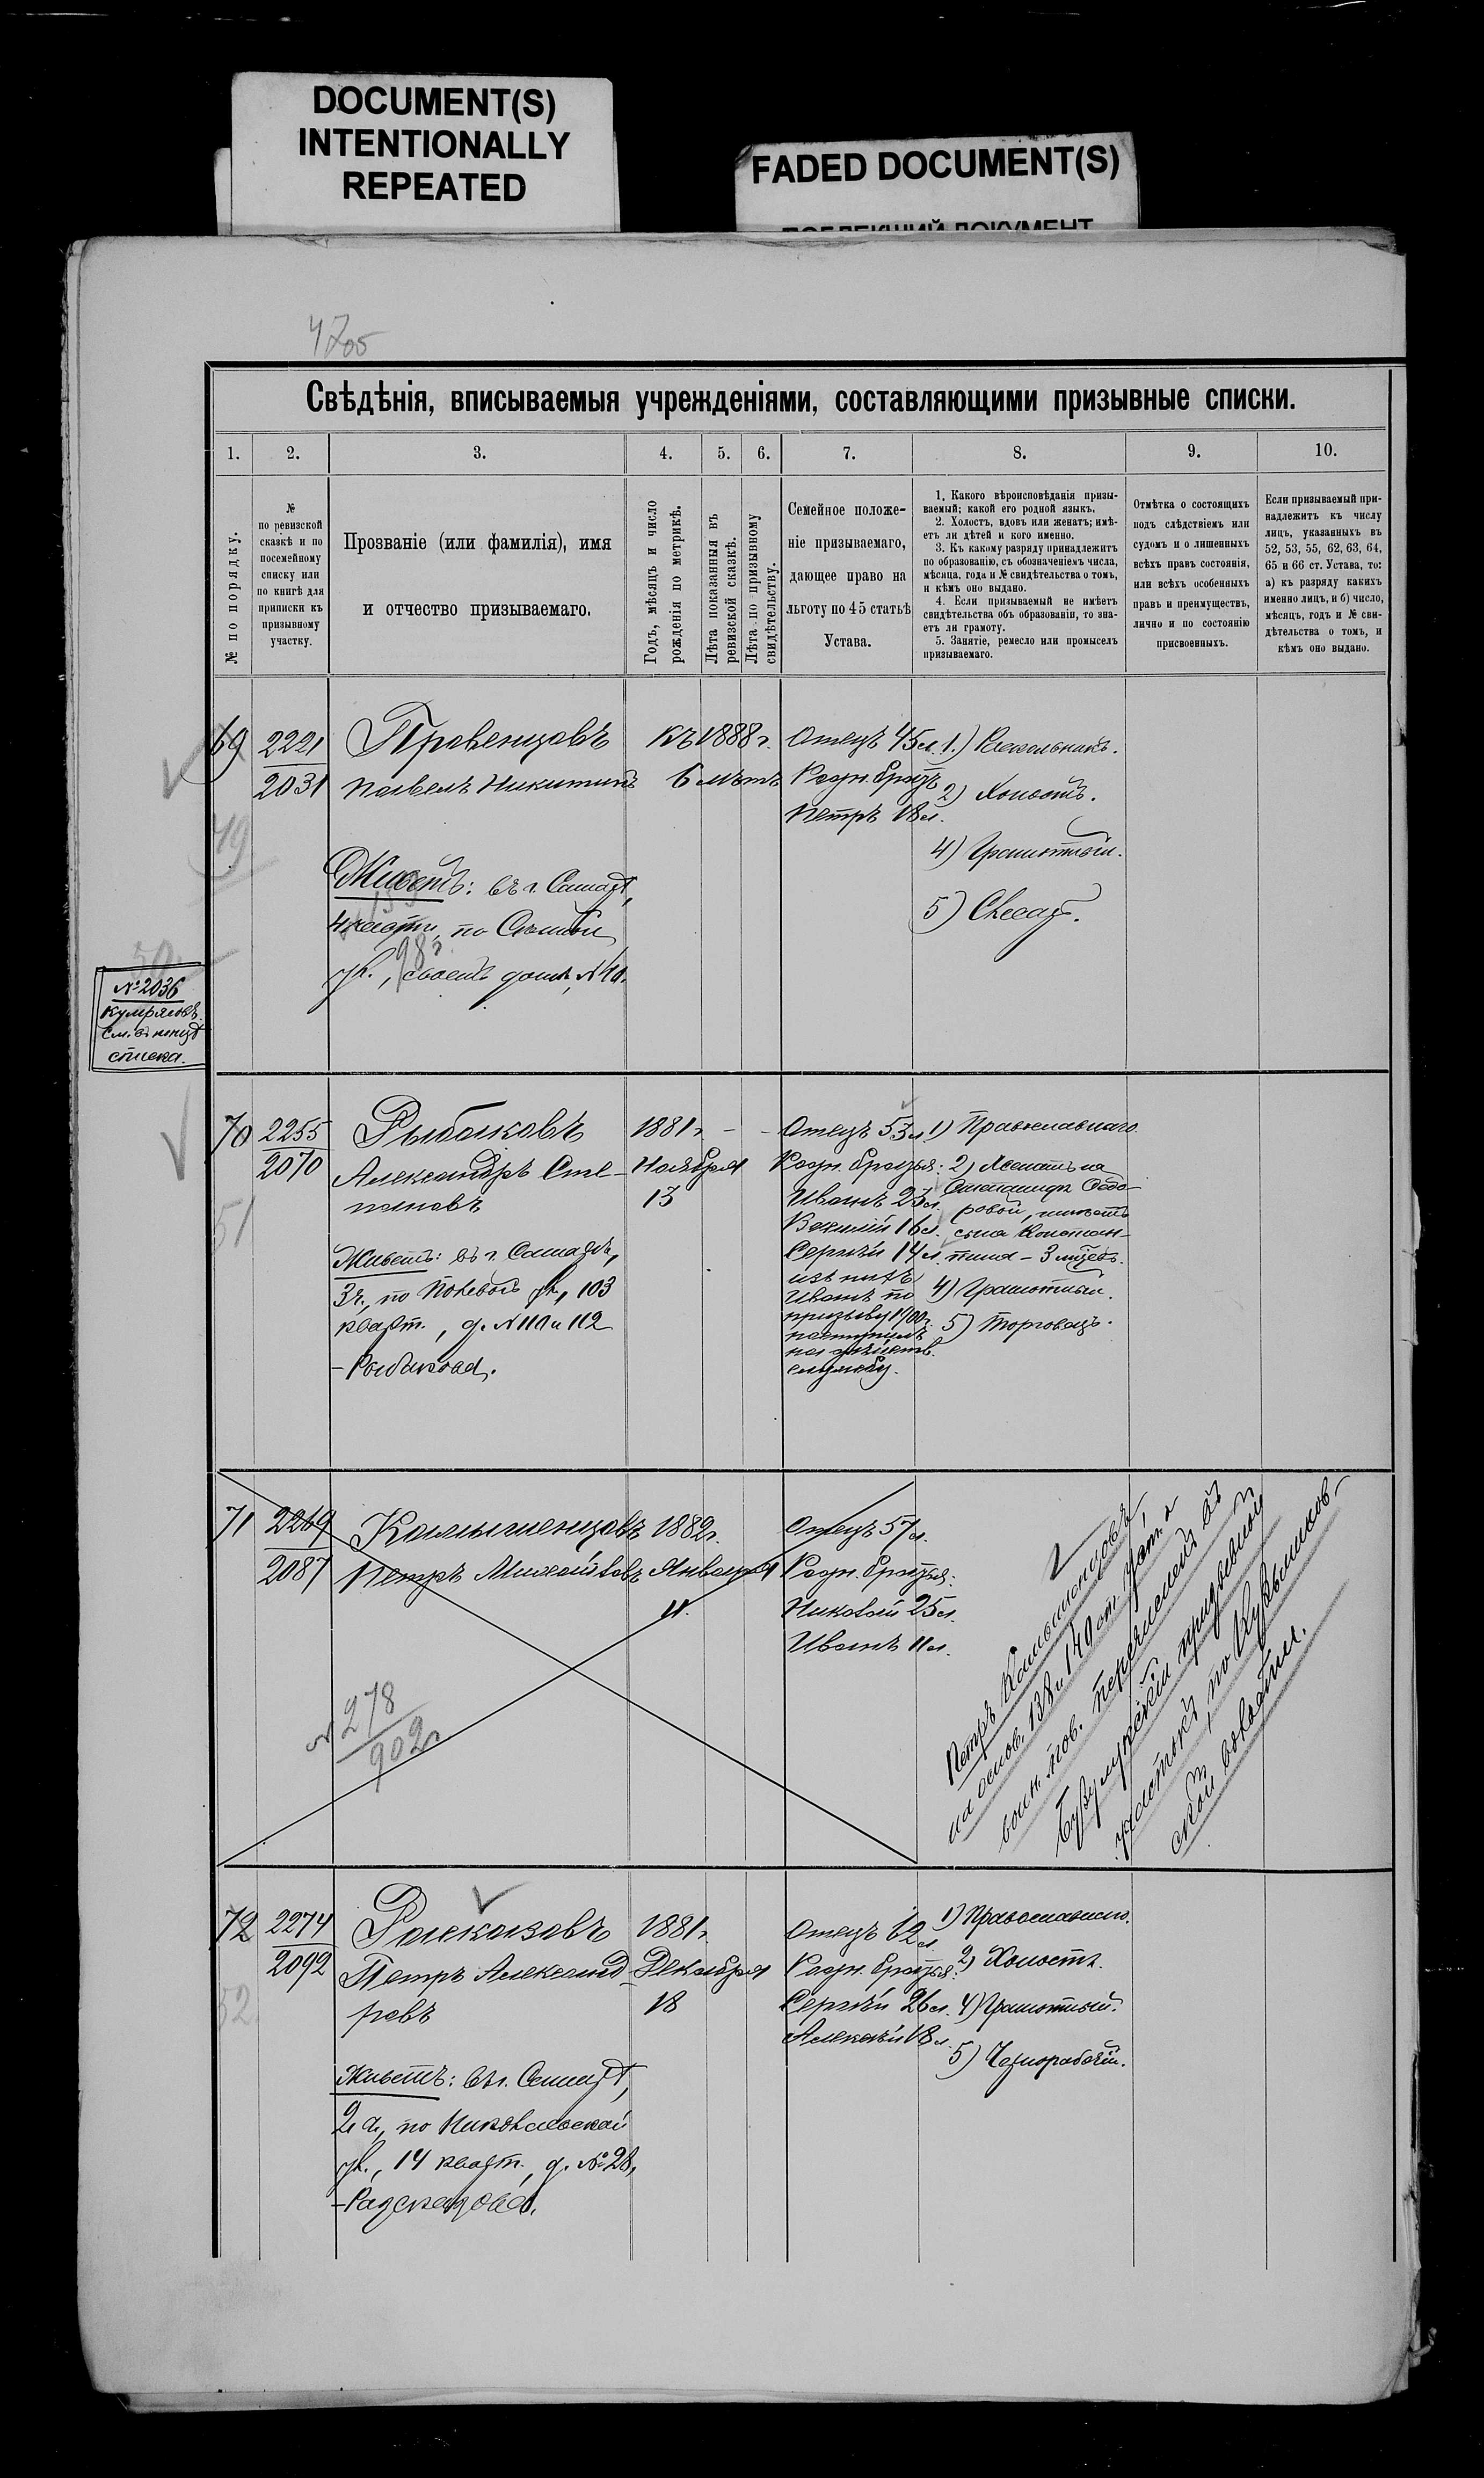 DOCUMENT(S)
INTENTIONALLY
REPEATED
FADED DOCUMENT(S)
ПОБЛЕКШИЙ ДОКУМЕНТ
Свѣдѣнія, вписываемыя учрежденіями, составляющими призывные списки.
1. 2. 3. 4. 5. 6. 7. 8. 9. 10.
№ по порядку.
№
по ревизской
сказкѣ и по
посемейному
списку или
по книгѣ для
приписки къ
призывному
участку.
Прозваніе (или фамилія), имя
и отчество призываемаго.
Годъ, мѣсяцъ и число
рожденія по метрикѣ.
Лѣта показанныя въ
ревизской сказкѣ.
Лѣта по призывному
свидѣтельству.
Семейное положе-
ніе призываемаго,
дающее право на
льготу по 45 статьѣ
Устава.
1. Какого вѣроисповѣданія призы-
ваемый; какой его родной языкъ.
2. Холостъ, вдовъ или женатъ; имѣ-
етъ ли дѣтей и кого именно.
3. Къ какому разряду принадлежитъ
по образованію, съ обозначеніемъ числа,
мѣсяца, года и № свидѣтельства о томъ,
и кѣмъ оно выдано.
4. Если призываемый не имѣетъ
свидѣтельства объ образованіи, то зна-
етъ ли грамоту.
5. Занятіе, ремесло или промыселъ
призываемаго.
Отмѣтка о состоящихъ
подъ слѣдствіемъ или
судомъ и о лишенныхъ
всѣхъ правъ состоянія,
или всѣхъ особенныхъ
правъ и преимуществъ,
лично и по состоянію
присвоенныхъ.
Если призываемый при-
надлежитъ къ числу
лицъ, указанныхъ въ
52, 53, 55, 62, 63, 64,
65 и 66 ст. Устава, то:
а) къ разряду какихъ
именно лицъ, и б) число,
мѣсяцъ, годъ и № сви-
дѣтельства о томъ, и
кѣмъ оно выдано.
69
2221
2031
Павелъ Никитинъ
Къ 1888 г.
6 лѣтъ
Отецъ 45 л.
Родн. братъ
Петръ 18 л.
1.) Раскольникъ.
2) Холостъ.
4) Грамотный.
Живетъ: въ г. Самарѣ,
4 части, по
ул., своемъ домѣ,
№ 2036
Кумряковъ.
См. въ концѣ
списка.
70
2255
2070
Рыбаковъ
Александръ Сте-
пановъ
1881 г. - -
Ноября
13
Живетъ: въ г. Самарѣ,
3 ч., по Полевой ул., 103
кварт., д. № 110 и 112
- Рыбакова.
Отецъ 53 л.
Родн. братья:
Иванъ 23 л.
Василій 16 л.
Сергѣй 14 л.
изъ нихъ
Иванъ по
призыву 1900 г.
поступилъ
на дѣйств.
службу.
1) Православнаго.
2) Женатъ на
Степанидѣ Федо-
ровой, имѣетъ
сына Констан-
тина - 3 мѣсяц.
4) Грамотный.
5) Торговецъ.
71
2269
2087
Камышенцовъ
Петръ Михайловъ
1882 г.
Января
11.
Отецъ 51 л.
Родн. братья:
Николай 25 л.
Иванъ 11 л.
Петръ Камышенцовъ,
на основ. 138 и 140 ст. Уст. о
воин. пов. перечисленъ въ
Бузулукскій призывной
участокъ, по Кузьминов-
ской волости.
№ 278
902
72
2274
2092
Разсказовъ
Петръ Александ-
ровъ
1881 г.
Декабря
18
Живетъ: въ г. Самарѣ,
2 ч., по Никольской
ул., 14 кварт., д. № 28,
- Разсказова.
Отецъ 62 л.
Родн. братья:
Сергѣй 26 л.
Алексѣй 18 л.
1) Православнаго.
2) Холостъ.
4) Грамотный.
5) Чернорабочій.